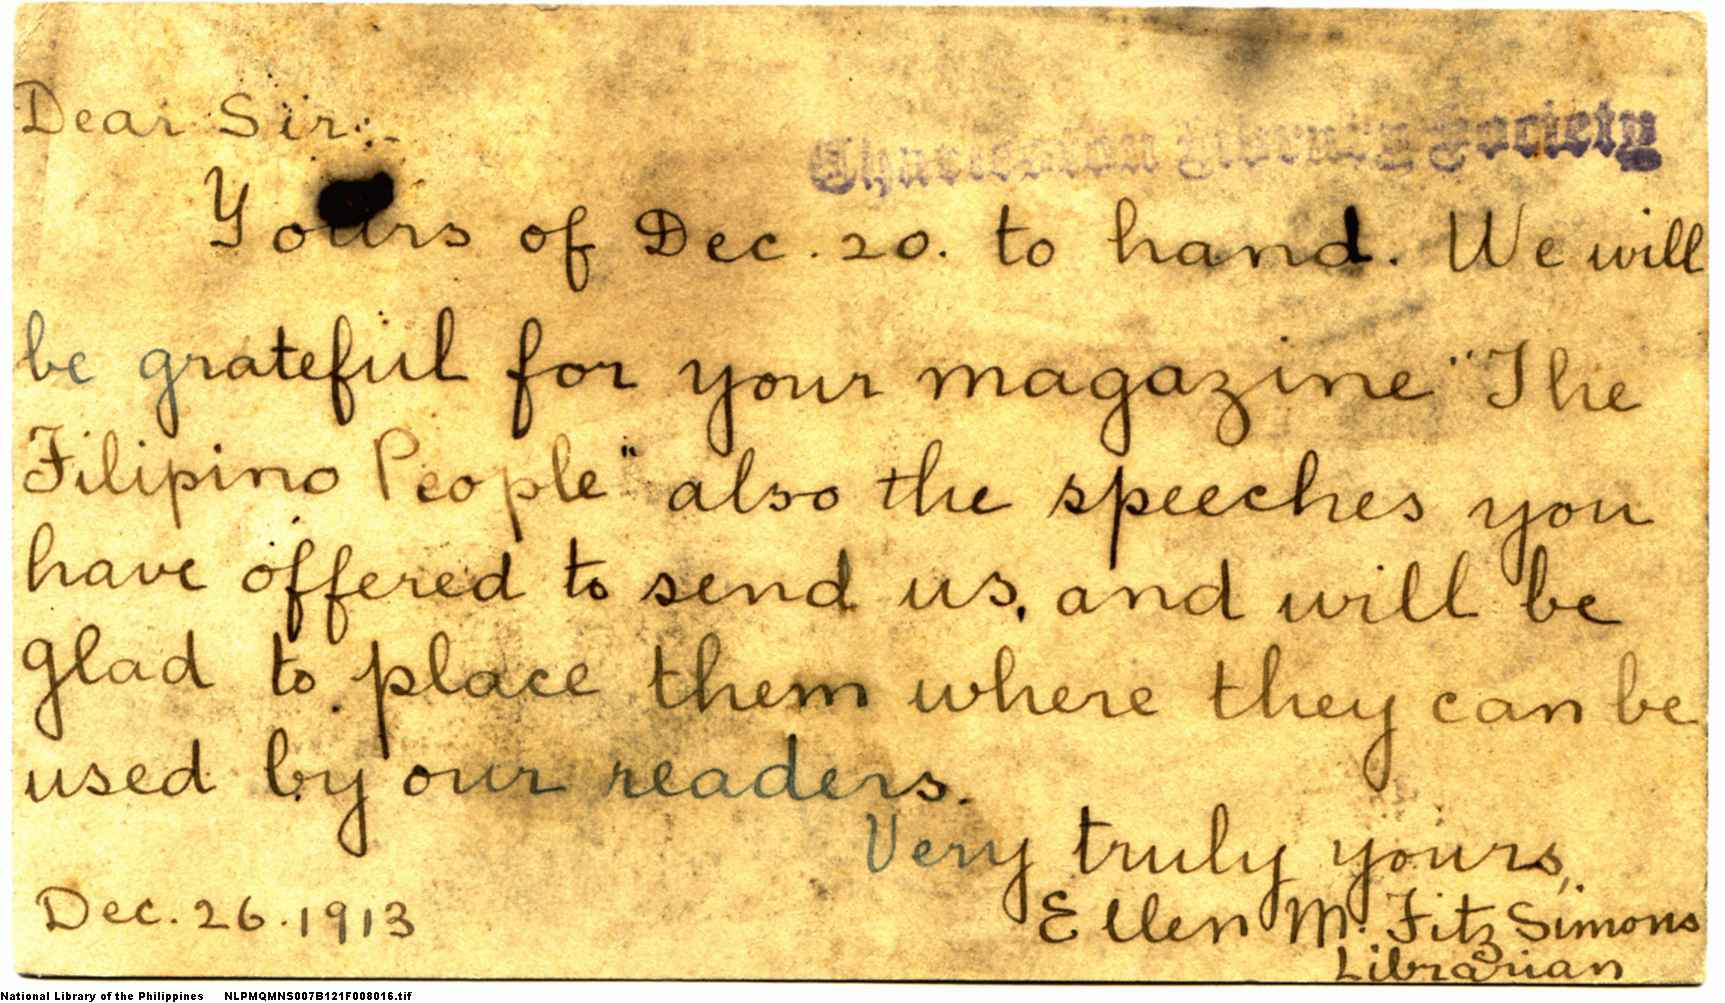 Dear Sir:-
Charleston Library Society
Yours of Dec. 20. to hand. We will
be grateful for your magazine "The
Filipino People" also the speeches you
have offered to send us, and will be
glad to place them where they can be
used by our readers.
Very truly yours,
Dec. 26. 1913
Ellen M. FitzSimons
Librarian
National Library of the Philippines NLPMQMNS007B121F008016.tif